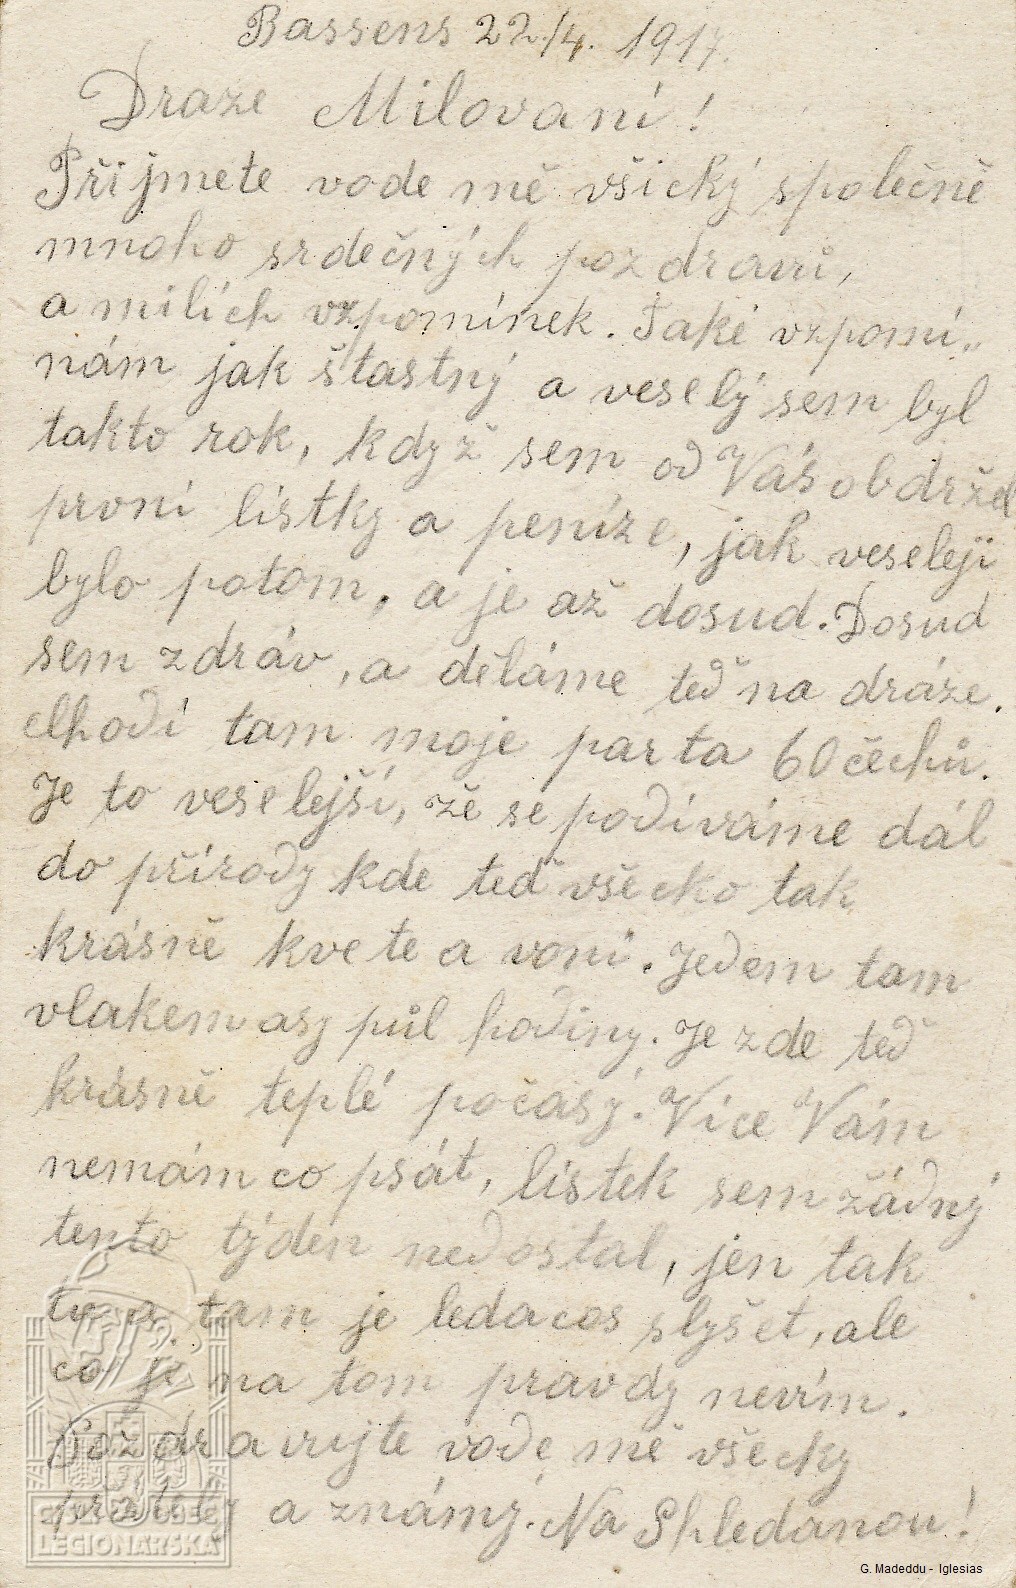 Bassens 22./4. 1917.
Draze Milovaní!
Přijmete vode mě všický společně
mnoho srdečných pozdravů,
a milích vzpomínek. Také vzpomí„
nám jak štastný a veselý sem byl
takto rok, když sem od Vás obdržel
první lístky a peníze, jak veseleji
bylo potom, a je až dosud. Dosud
sem zdráv, a děláme teď na dráze.
chodí tam moje parta 60 čechů.
Je to veselejší, že se podíváme dál
do přírody kde teď všecko tak
krásně kvete a voní. Jedem tam
vlakem asy půl hodiny. Je zde teď
krásně teplé počasý. Více Vám
nemám co psát, lístek sem žádný
tento týden nedostal, jen tak
tu a tam je ledacos slyšet, ale
co je na tom pravdy nevím.
Pozdravujte vode mě všecky
přátely a známý. Na Shledanou!
ČESKÁ OBEC
LEGIONÁŘSKÁ
G. Madeddu - Iglesias